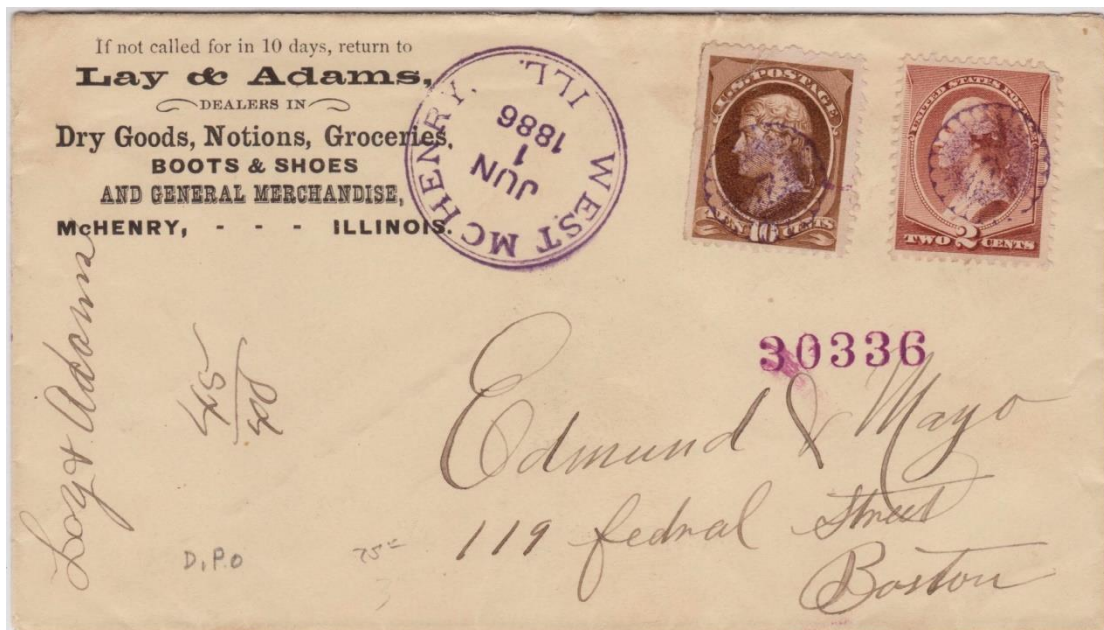 If not called for in 10 days, return to
Lay & Adams,
DEALERS IN
Dry Goods, Notions, Groceries,
BOOTS & SHOES
AND GENERAL MERCHANDISE,
McHENRY, - - - ILLINOIS.
WEST MCHENRY, ILL.
JUN
1
1886
U.S. POSTAGE
TEN 10 CENTS
UNITED STATES POSTAGE
TWO 2 CENTS
30336
Edmund & Mayo
119 fedral Street
Boston
Loy & Adams
D.P.O
75=